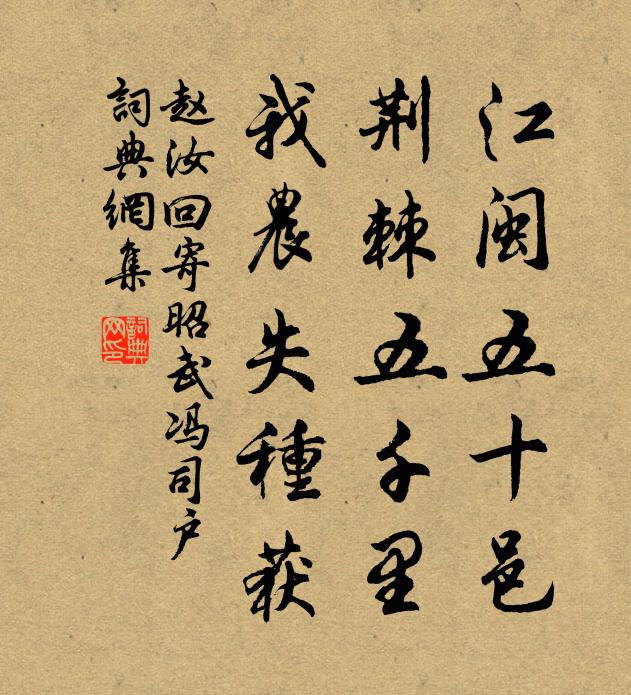 江闽五十邑
荆棘五千里
我農失種获
赵汝回寄昭武冯司户
詞典網集
詞典网印